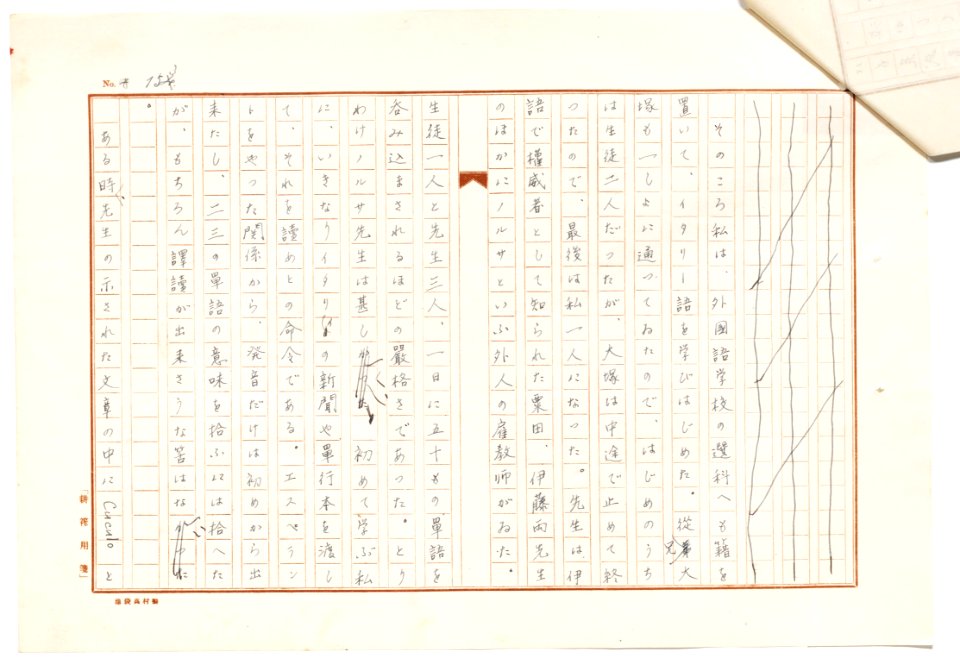 No.
そのころ私は、外國語学校の選科へも籍を
置いて、イタリー語を学びはじめた。從兄大
塚も一しよに通つてゐたので、はじめのうち
は生徒二人だつたが、大塚は中途で止めて終
つたので、最後は私一人になつた。先生は、伊
語で權威者として知られた粟田、伊藤両先生
のほかにノルサといふ外人の雇教師がゐた。
生徒一人と先生三人、一日に五十もの單語を
呑み込まされるほどの嚴格さであつた。とり
わけノルサ先生は甚し く、初めて学ぶ私
に、いきなりイタリーの新聞や單行本を渡し
て、それを讀めとの命令である。エスペラン
トをやつた関係から、発音だけは初めから出
来たし、二三の單語の意味を拾ふには拾へた
が、もちろん譯讀が出来さうな筈はない
。
ある時、先生の示された文章の中に Cuculo と
「耕筰用箋」